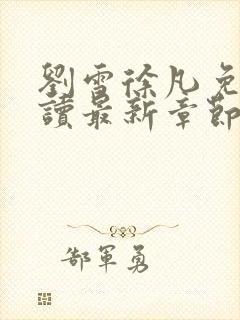 劉雪徐凡免
讀最新章節
郜軍勇